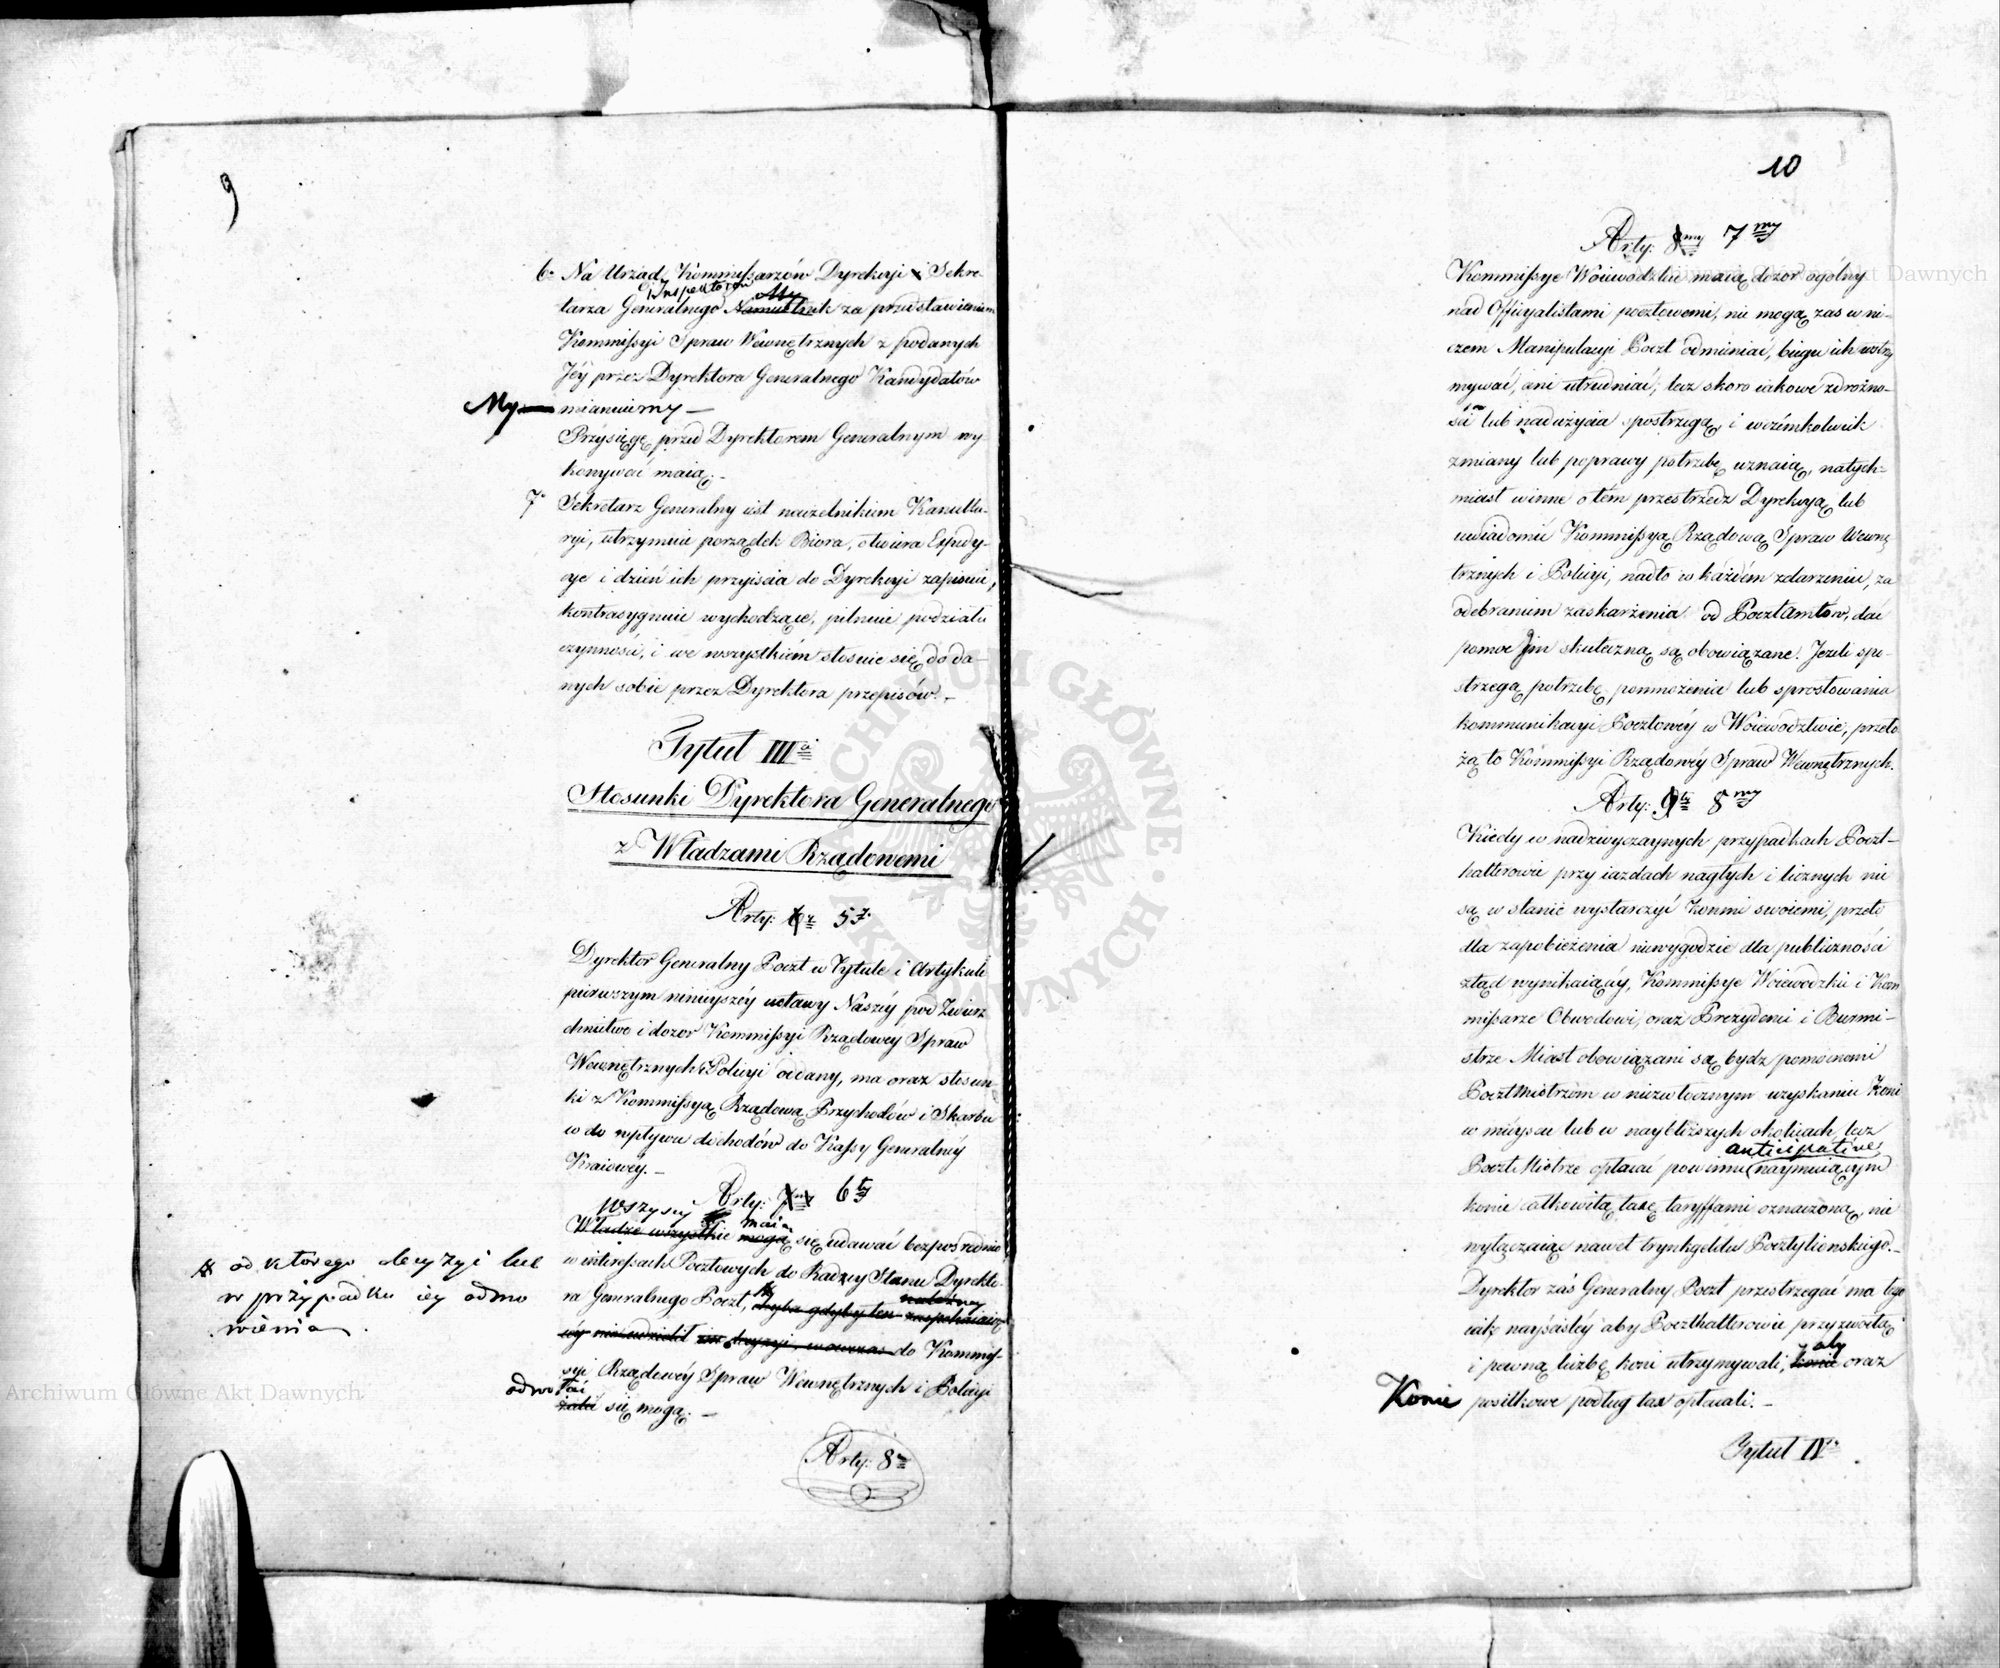 9
6o Na Urząd Kommissarzów Dyrekcyi i Sekre-
Inspektorów
tarza Generalnego Namiestnik za przedstawieniem
My
Kommissyi Spraw Wewnętrznych z podanych
Jéy przez Dyrektora Generalnego Kandydatów
My mianuiemy
Przysięgę przed Dyrektorem Generalnym wy
konywać maią.
7o Sekretarz Generalny iest naczelnikiem Kancella-
ryi, utrzymuie porządek Biora, otwiera Expedy-
cye i dzień ich przyiścia do Dyrekcyi zapisuie,
kontrasygnuie wychodzące, pilnuie podziału
czynności, i we wszystkiém stosuie się do da-
nych sobie przez Dyrektora przepisów.
Tytuł III
Stosunki Dyrektora Generalnego
z Władzami Rządowemi
Arty: 6 5
Dyrektor Generalny Poczt w Tytule i Artykule
pierwszym ninieyszéy ustawy Naszéy pod Zwierz
chnictwo i dozor Kommissyi Rządowey Spraw
Wewnętrznych i Policyi oddany, ma oraz stosun-
ki z Kommissyą Rządową Przychodów i Skarbu
w do wpływu dochodów do Kassy Generalnéy
Kraiowéy.
Arty: 7my 6ty
Wszyscy maią
Władze wszystkie mogą się udawać bezpośrednio
w interessach Pocztowych do Radzcy Stanu Dyrekto-
ra Generalnego Poczt, chyba gdyby ten zaspokaiaią-
należney
céy nieudzielił decyzyi, wowczas do Kommis-
syi Rządowéy Spraw Wewnętrznych i Policyi
odwołać
żalić się mogą.
od ktorego decyzyi lub
w przypadku iey odmo
wienia
Arty: 8
10
Arty: 8my 7my
Kommissye Woiewódzkie maią dozor ogólny
nad Officyalistami pocztowemi, nie mogą zas w ni-
czem Manipulacyi Poczt odmieniać, biegu ich wstrzy
mywać, ani utrudniać; lecz skoro iakowe zdrożno-
ści lub nadużycia spostrzegą, i w czémkolwiek
zmiany lub poprawy potrzebę uznaią, natych-
miast winne o tém przestrzedz Dyrekcyą lub
uwiadomić Kommissyą Rządową Spraw Wewnę
trznych i Policyi, nadto w każdém zdarzeniu, za
odebraniem zaskarżenia od Pocztamtów, dać
pomoc Jm skuteczną są obowiązane. Jeżeli spo-
strzegą potrzebę pomnożenia lub sprostowania
kommunikacyi Pocztowéy w Woiewództwie, przeło
żą to Kommissyi Rządowéy Spraw Wewnętrznych.
Arty: 9ty 8my
Kiedy w nadzwyczaynych przypadkach Poczt-
halterowie przy iazdach nagłych i licznych nie
są w stanie wystarczyć Końmi swoiemi, przeto
dla zapobieżenia niewygodzie dla publiczności
ztąd wynikaiącéy, Kommissye Woiewodzkie i Kom
missarze Obwodowi, oraz Prezydenci i Burmi-
strze Miast obowiązani są bydz pomocnemi
Pocztmistrzom w niezwłocznym uzyskaniu Koni
w mieyscu lub w naybliższych okolicach, lecz
anticipative
Poczt Mistrze opłacać powinni naymuiącym
konie całkowitą taxę taryffami oznaczoną, nie
wyłączaiąc nawet trynkgeldu Pocztylionskiego.
Dyrektor zaś Generalny Poczt przestrzegać ma tego
iak nayściśléy aby Poczthalterowie przyzwoitą
i pewną liczbę koni utrzymywali, konie oraz
aby
Konie posiłkowe podług tax opłacali.
Tytuł IV
Archiwum Główne Akt Dawnych
ARCHIWUM GŁÓWNE AKT DAWNYCH